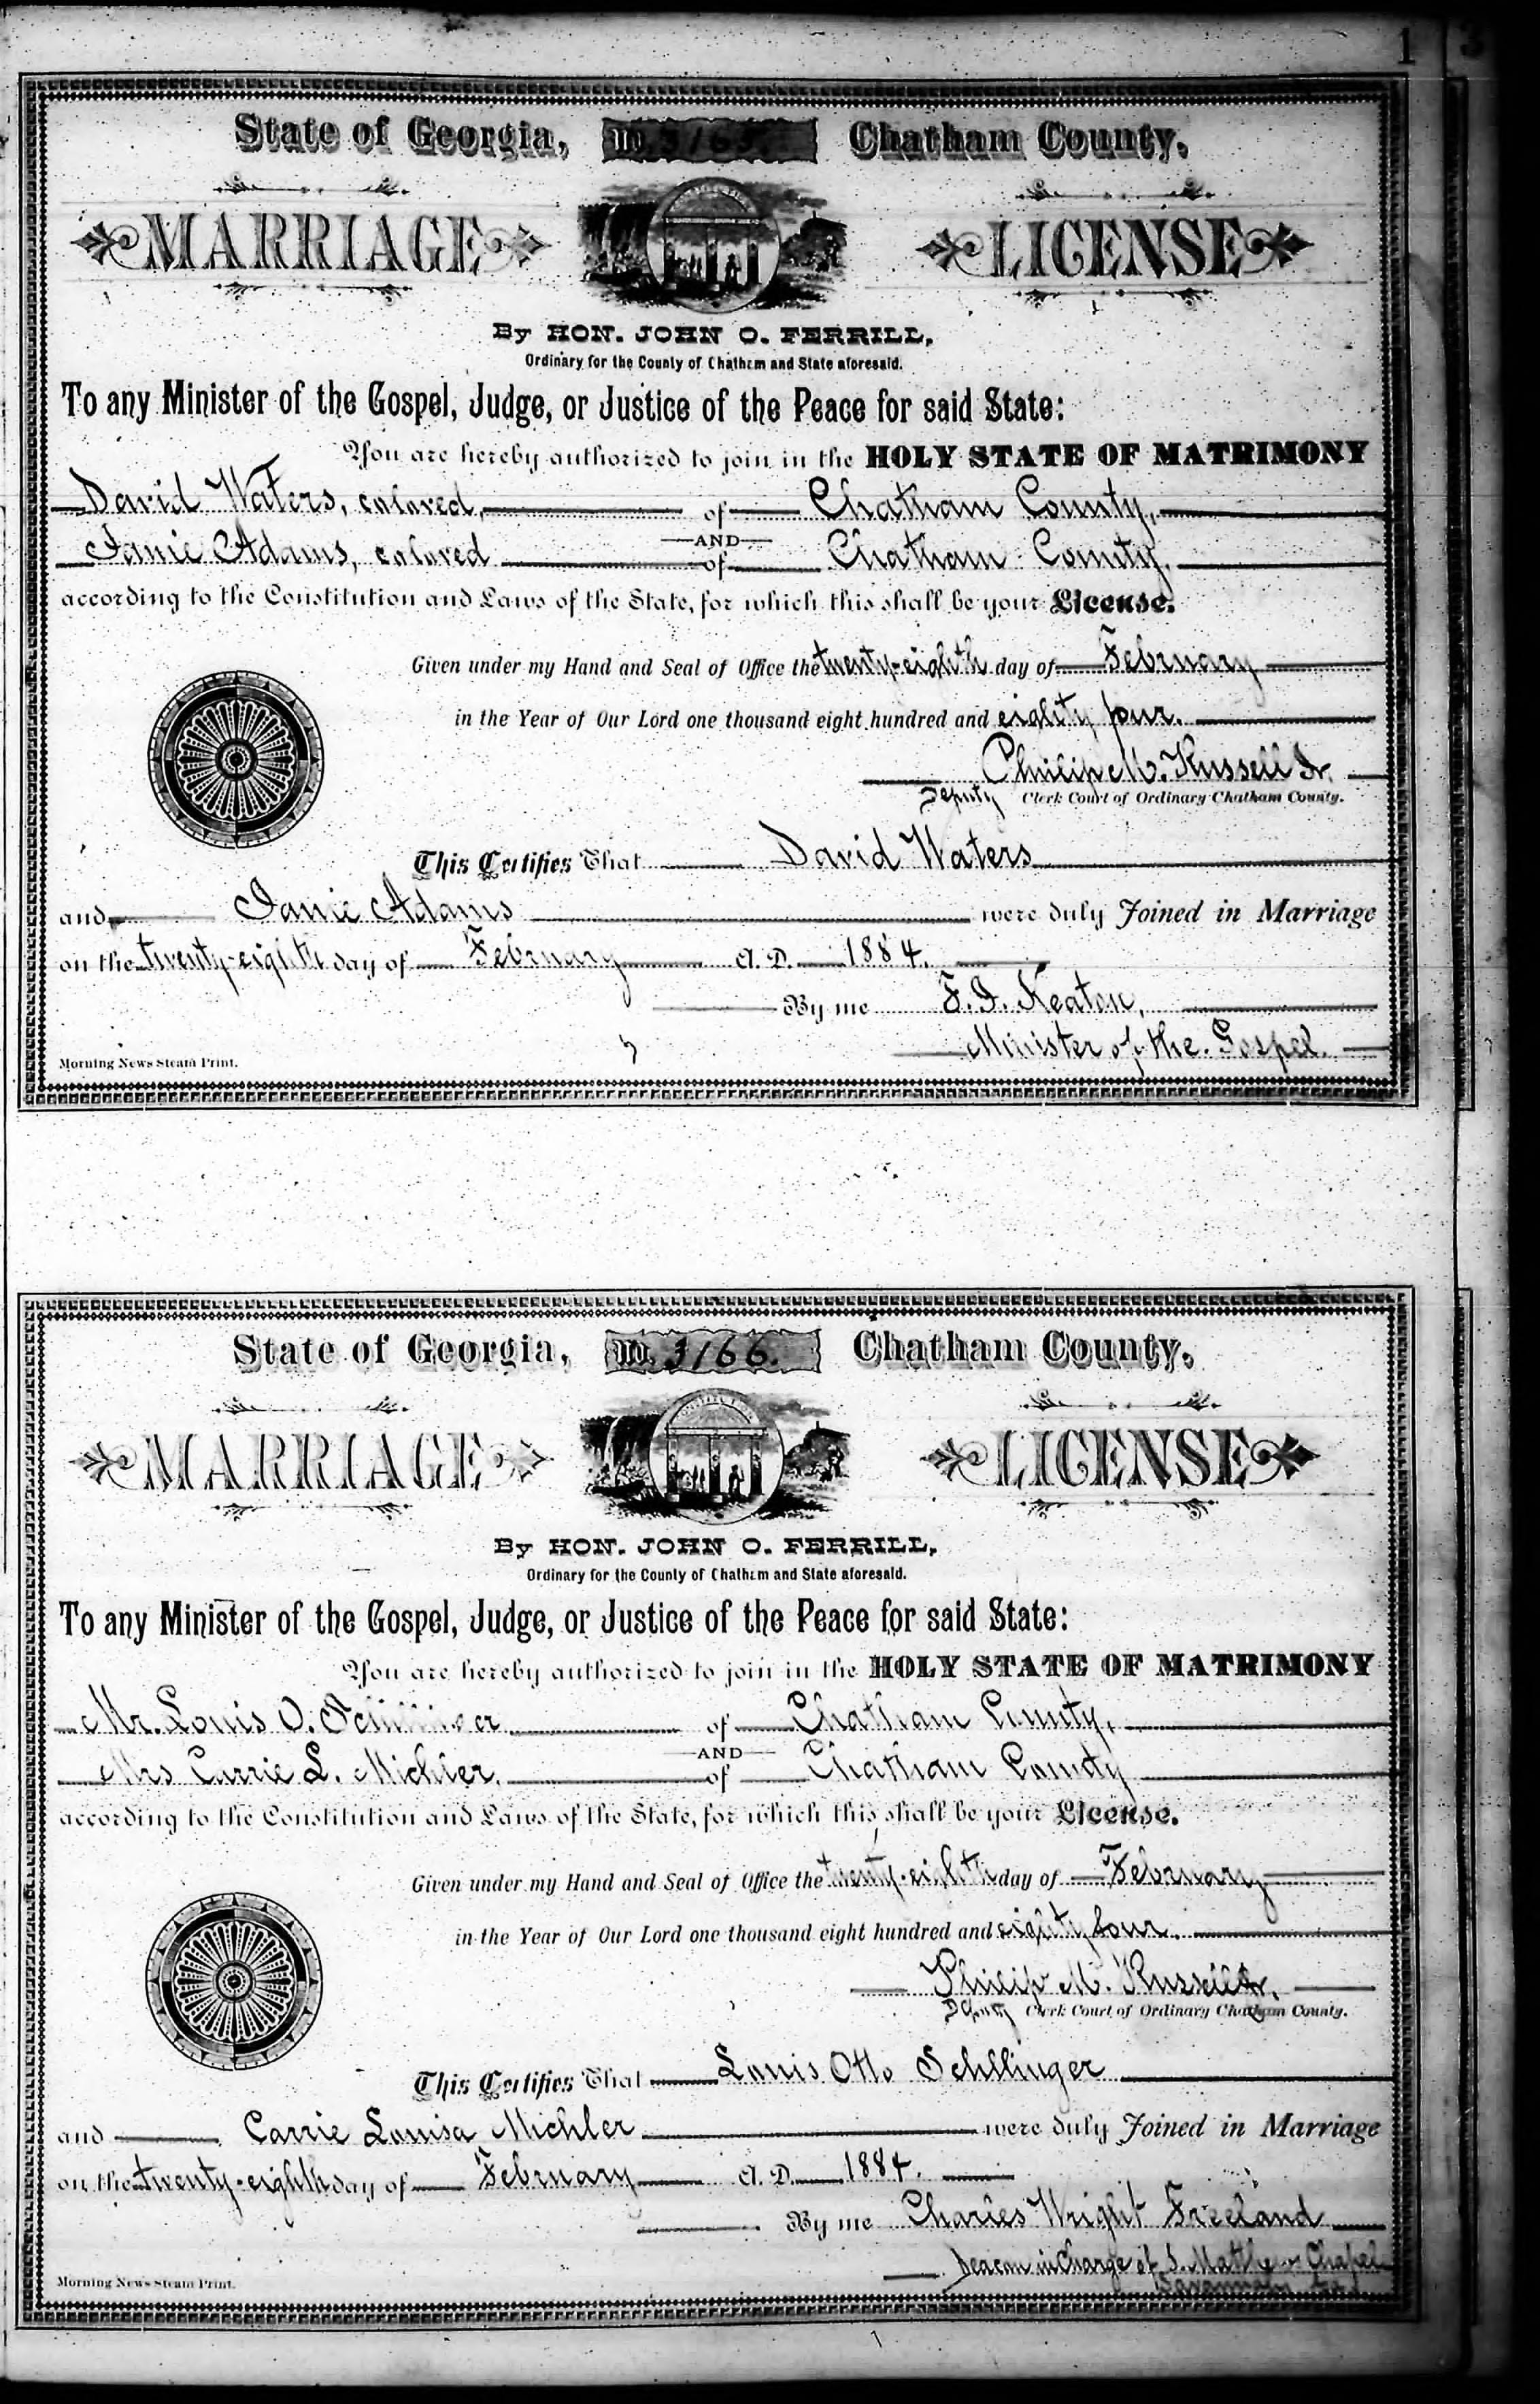 1
3
State of Georgia, No. 3165. Chatham County.
MARRIAGE LICENSE
By HON. JOHN O. FERRILL,
Ordinary for the County of Chatham and State aforesaid.
To any Minister of the Gospel, Judge, or Justice of the Peace for said State:
You are hereby authorized to join in the HOLY STATE OF MATRIMONY
David Waters, colored, of Chatham County,
AND
Janie Adams, colored of Chatham County,
according to the Constitution and Laws of the State, for which this shall be your License.
Given under my Hand and Seal of Office the twenty-eighth day of February
in the Year of Our Lord one thousand eight hundred and eighty four.
Philip M. Russell Jr.
Deputy Clerk Court of Ordinary Chatham County.
This Certifies That David Waters
and Janie Adams were duly Joined in Marriage
on the twenty-eighth day of February A. D. 1884.
By me F. J. Keaton,
Minister of the Gospel.
Morning News Steam Print.
State of Georgia, No. 3166. Chatham County.
MARRIAGE LICENSE
By HON. JOHN O. FERRILL,
Ordinary for the County of Chatham and State aforesaid.
To any Minister of the Gospel, Judge, or Justice of the Peace for said State:
You are hereby authorized to join in the HOLY STATE OF MATRIMONY
Mr. Louis O. of Chatham County,
AND
Mrs Carrie L. Michler, of Chatham County
according to the Constitution and Laws of the State, for which this shall be your License.
Given under my Hand and Seal of Office the twenty-eighth day of February
in the Year of Our Lord one thousand eight hundred and eighty four.
Philip M. Russell Jr.
Deputy Clerk Court of Ordinary Chatham County.
This Certifies That Louis Otto Schllinger
and Carrie Louisa Michler were duly Joined in Marriage
on the twenty-eighth day of February A. D. 1884.
By me Charles Wright Freeland
Deacon in Charge of S. Matthew Chapel
Savannah Ga.
Morning News Steam Print.